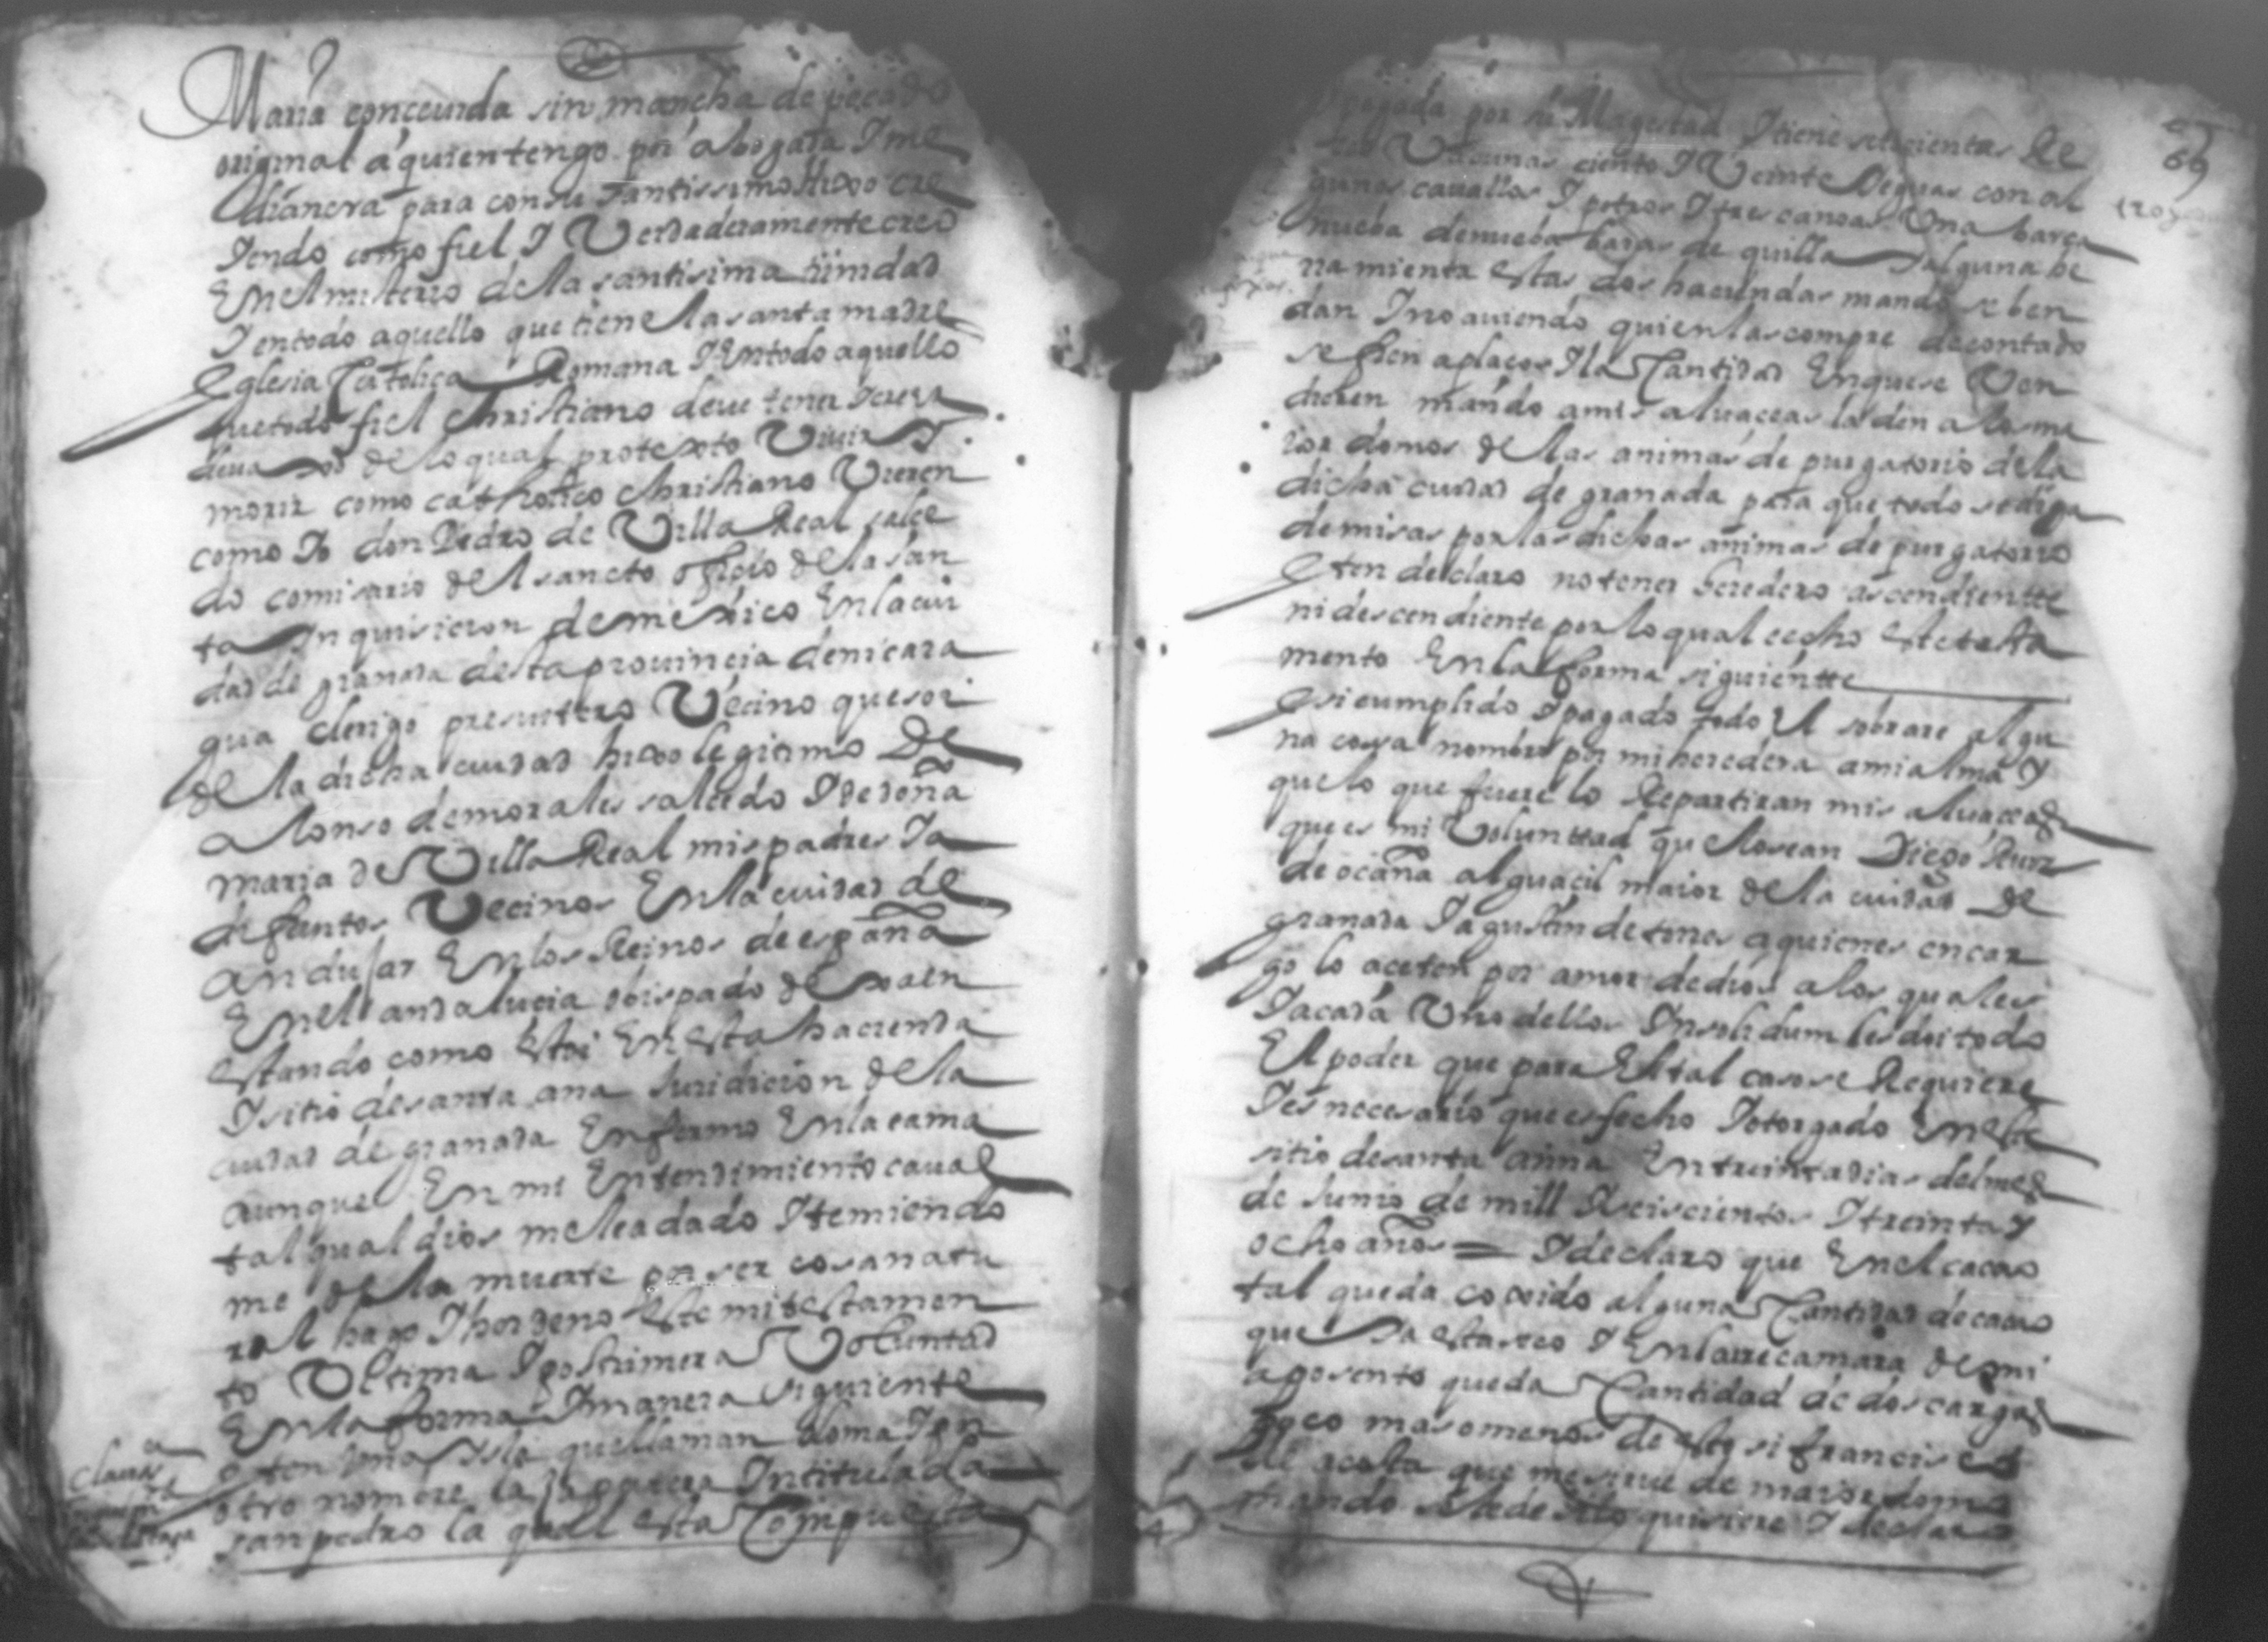 Maria conceuida sin mancha de pecado
original a quien tengo por abogada I me
dianera para con su santissimo hixo cre
Iendo como fiel I Verdaderamente creo
En el misterio de la santisima trinidad
I en todo aquello que tiene la santa madre
Eglesia Catolica Romana I En todo aquello
que todo fiel christiano deue tener I creer
deuaxo de lo qual protexto Viuir I
morir como catholico christiano Vieren
como Io don Pedro de Villa Real salce
do comisario del sancto oficio de la san
ta Inquisicion de mexico En la ciu
dad de granada desta prouincia de nicara
gua clerigo presuitero Vecino que soi
de la dicha ciudad hixo legitimo De
alonso de morales salcedo I de doña
maria de Villa Real mis padres Ia
difuntos Vecinos En la ciudad de
andujar En los Reinos de españa
En el andalucia obispado de xaen
estando como estoi En esta hacienda
I sitio de santa ana Juridicion de la
ciudad de granada Enfermo En la cama
aunque En mi Entendimiento caual
tal qual dios me lea dado I temiendo
me de la muerte por ser cosa natu
ral hago I hordeno Este mi testamen
to Vltima I postrimera Voluntad
En la forma I manera siguiente
Iten Una Isla que llaman I por
otro nombre la Intitulada
san pedro la qual esta Conpuesta
Claus
69
pagada por su Magestad I tiene seiscientas Re
ses Vacunas ciento I Veinte Ieguas con al
gunos cauallos I potros I tres canoas Una barca
nueba de nueba baras de quilla I alguna he
rramienta estas dos haciendas mando se ben
dan I no auiendo quien las compre de contado
se fien a plaços I la Cantidad En que se Ven
dieren mando a mis aluaceas la den a los ma
iordomos de las animas de purgatorio de la
dicha ciudad de granada para que todo se diga
de misas por las dichas animas de purgatorio
Iten declaro no tener heredero ascendientte
ni descendiente por lo qual e echo este testa
mento En la forma siguientte
I si cumplido I pagado todo El sobrare algu
na cossa nombro por mi heredera a mi alma I
que lo que fuere lo Repartiran mis aluaceas
que es mi Voluntad que lo sean Diego Ruiz
de ocaña alguacil maior de la ciudad De
granada I agustin de a quienes encar
go lo aceten por amor de dios a los quales
I a cada Uno dellos Insolidum les doi todo
El poder que para El tal caso se Requiere
I es necesario que es fecho I otorgado En este
sitio de santa anna En treinta dias del mes
de Junio de mill I seiscientos I treinta I
ocho años = I declaro que En el cacao
tal queda coxido alguna Cantidad de cacao
que Ia esta seco I En la rrecamara de mi
aposento queda Cantidad de dos cargas
poco mas o menos de esto si francisco
de acosta que me sirue de maiordomo
mando se le de si lo quisiere I declaro